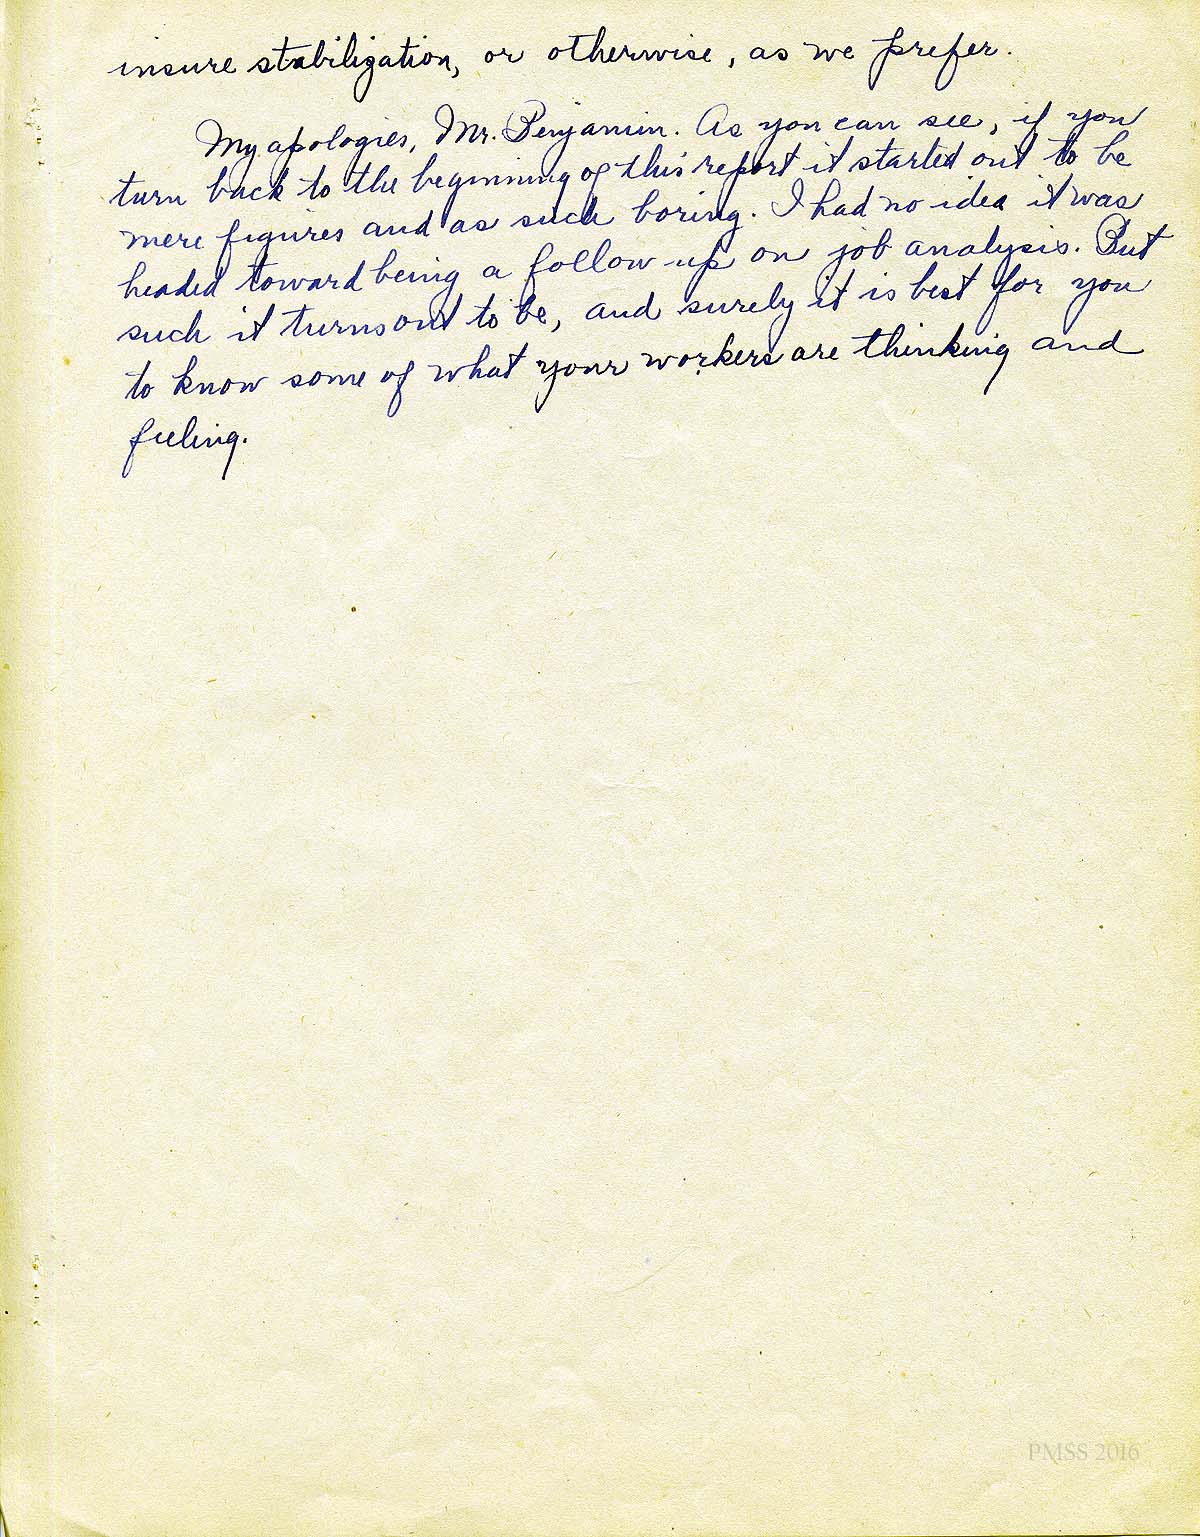 insure stabilization, or otherwise, as we prefer.
My apologies, Mr. Benjamin. As you can see, if you
turn back to the beginning of this report it started out to be
mere figures and as such boring. I had no idea it was
headed toward being a follow-up on job analysis. But
such it turns out to be, and surely it is best for you
to know some of what your workers are thinking and
feeling.
PMSS 2016